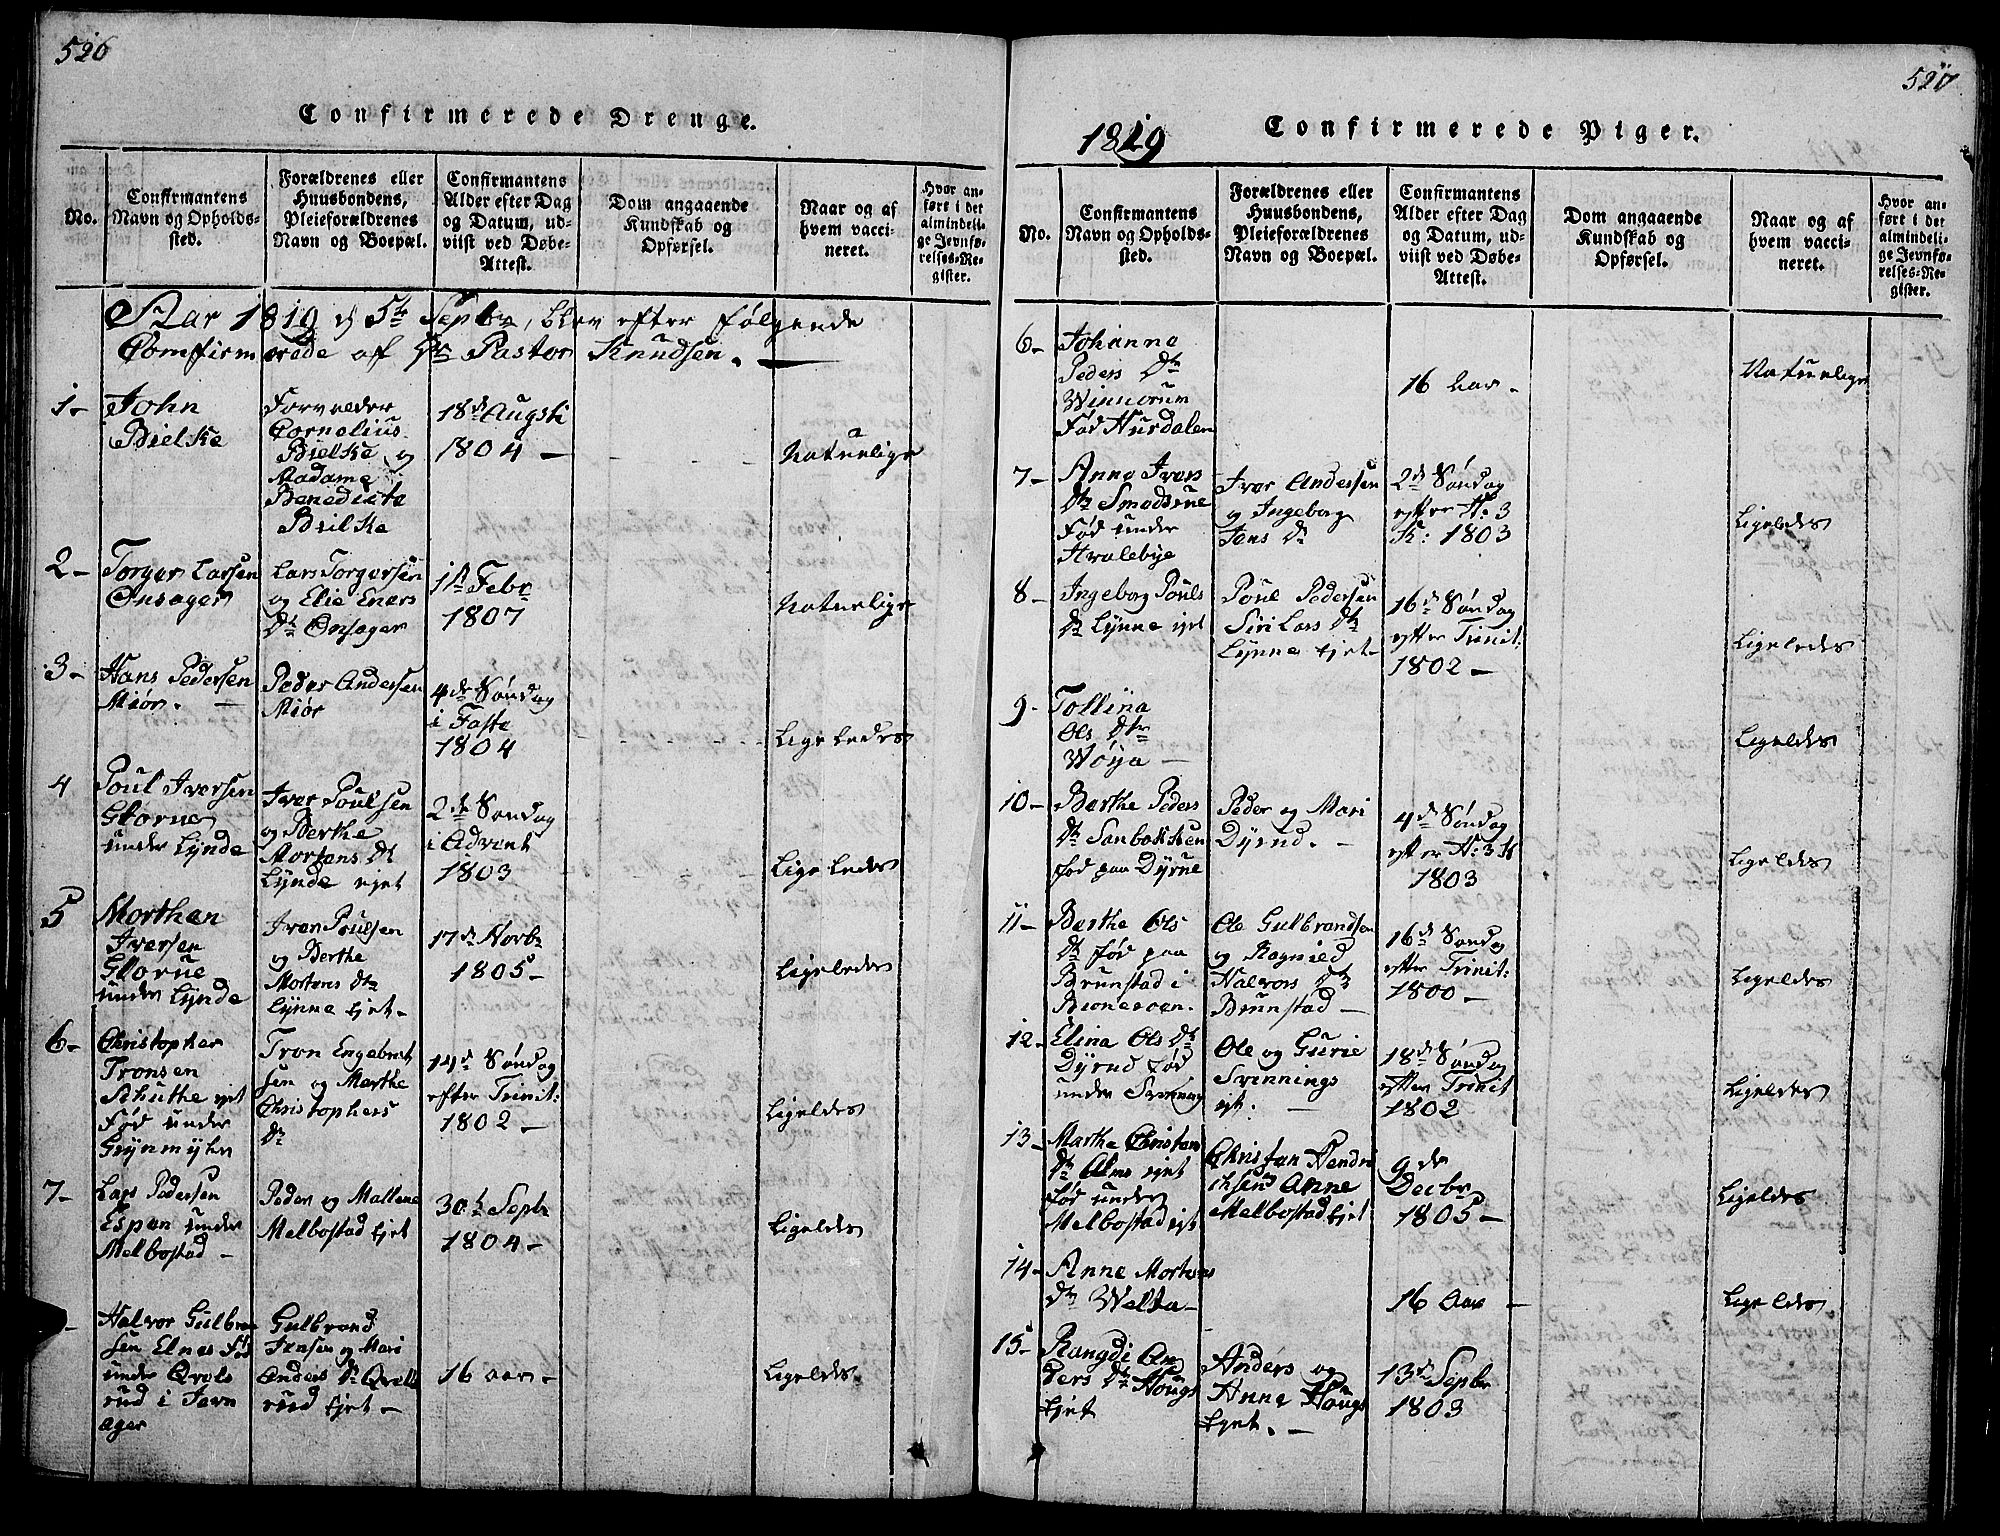 526
Confirmerede Drenge.
No.
Confirmantens
Navn og Opholds-
sted.
Forældrenes eller
Huusbondens,
Pleieforældrenes
Navn og Boepæl.
Confirmantens
Alder efter Dag
og Datum, ud-
viist ved Døbe-
Attest.
Dom angaaende
Kundskab og
Opførsel.
Naar og af
hvem vacci-
neret.
Hvor an-
ført i det
almindeli-
ge Jevnfø-
relses-Re-
gister.
Aar 1819 d 5te Sepbr, blev efter følgende
Comfirmerede af Hr Pastor Knudsen. —
1- John
Bielke
Forvalder
Cornelius
Bielke og
Madame
Benedicta
Bielke
18d Augsti
1804 —
Naturlige
2- Torger Larsen
Onsager
Lars Torgersen
og Elie Eners
Dtr Onsager
1st Febr
1807
Naturlige
3- Hans Pedersen
Miør. —
Peder Andersen
Miør
4de Søndag
i Faste
1804
Ligeledes
4 Poul Iversen
Glorue
under Lynde
Iver Poulsen
og Berthe
Mortens Dt
Lynde ejet
2de Søndag
i Advent
1803
Ligeledes
5 Morthen
Iversen
Glorue
under Lynde
Iver Poulsen
og Berthe
Mortens Dtr
Lynne Ejet-
17d Novbr
1805-
Ligeledes
6- Christopher
Tronsen
Schuthe ejet
Fød under
Grynmyhr
Tron Engebret
sen og Marthe
Christophers
Dtr
14d Søndag
efter Trinit:
1802 —
Ligeldes
7- Lars Pedersen
Espen under
Melbostad —
Peder og Mallene
Melbostad Ejet
30th Sepbr
1804-
Ligeldes
- Halvor Gulbran
sen Elnes Fød
under Qvals
rud i Jevn
ager
Gulbrand
Jensen og Mari
Anders Dt Qvals
rud Ejet —
16 aar-
Ligeldes
527
1819
Confirmerede Piger.
No.
Confirmantens
Navn og Opholds-
sted.
Forældrenes eller
Huusbondens,
Pleieforældrenes
Navn og Boepæl.
Confirmantens
Alder efter Dag
og Datum, ud-
viist ved Døbe-
Attest.
Dom angaaende
Kundskab og
Opførsel.
Naar og af
hvem vacci-
neret.
Hvor an-
ført i det
almindeli-
ge Jevnfø-
relses-Re-
gister.
6- Johanna
Peders Dtr
Winnorum
Fød Hurdalen
16 Aar -
Naturlige
7- Anna Ivers
Dtr Smedsrue
Fød under
Hvalebye
Iver Andersen
og Ingeborg
Jens Dr
2d Søndag
efter H: 3
K: 1803
Ligeldes
8- Ingeborg Pouls
Dr Lynne ejet
Poul Pedersen
Siri Lars Dtr
Lynne Ejet-
16d Søndag
efter Trinit:
1802 —
Ligeledes
9- Tollina
Ols Dtr
Wøya —
Ligeldes
10- Berthe Peders
Dtr Sanbækken
fød paa Dyrue
Peder og Mari
Dyrud. —
4d Søndag
efter H: 3 K
1803
Ligeldes
11- Berthe Ols
Dt Fød paa
Brunstad i
Bioneroen.
Ole Gulbrandsen
og Ragnild
Halvors Dtr
Brunstad —
16d Søndag
efter Trinit:
1800 —
Ligeldes
12- Elina Ols Dt
Dyrud Fød
under
Ole og Gurie
Svennings
ejt. —
18d Søndag
efter Trinit
1802
Ligeldes
13- Marthe Christans
Dtr Alms ejet
Fød under
Melbostad ejt
Christan Hendri
chsen Anne
Melbostad Ejet
9de
Decbr
1805 —
Ligeldes
14- Anne Mortens
Dtr Welta-
16 Aar —
Ligeldes
15- Rangdi An
ders Dtr Houg
Ejet
Anders og
Anne Houg
Ejet. —
13d Sepbr
1803